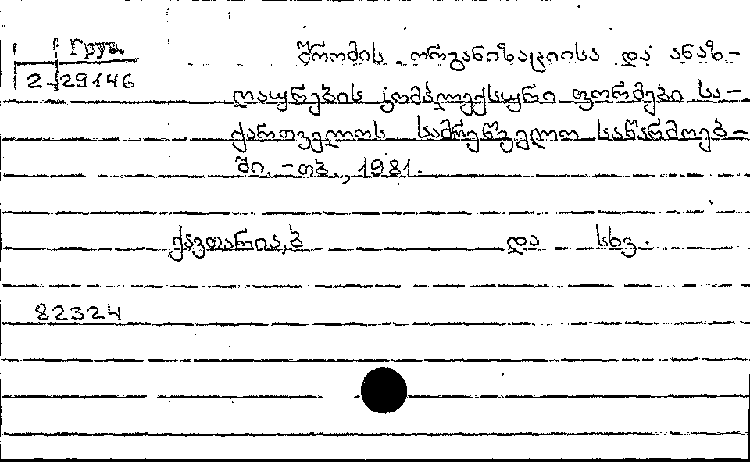 Груз.
2-29146
შრომის ორგანიზაციისა და ანაზ-
ღაურების კომპლექსური ფორმები სა-
ქართველოს სამრეწველო საწარმოებ-
ში. -თბ., 1981.
ქავთარია, ბ და სხვ.
82324